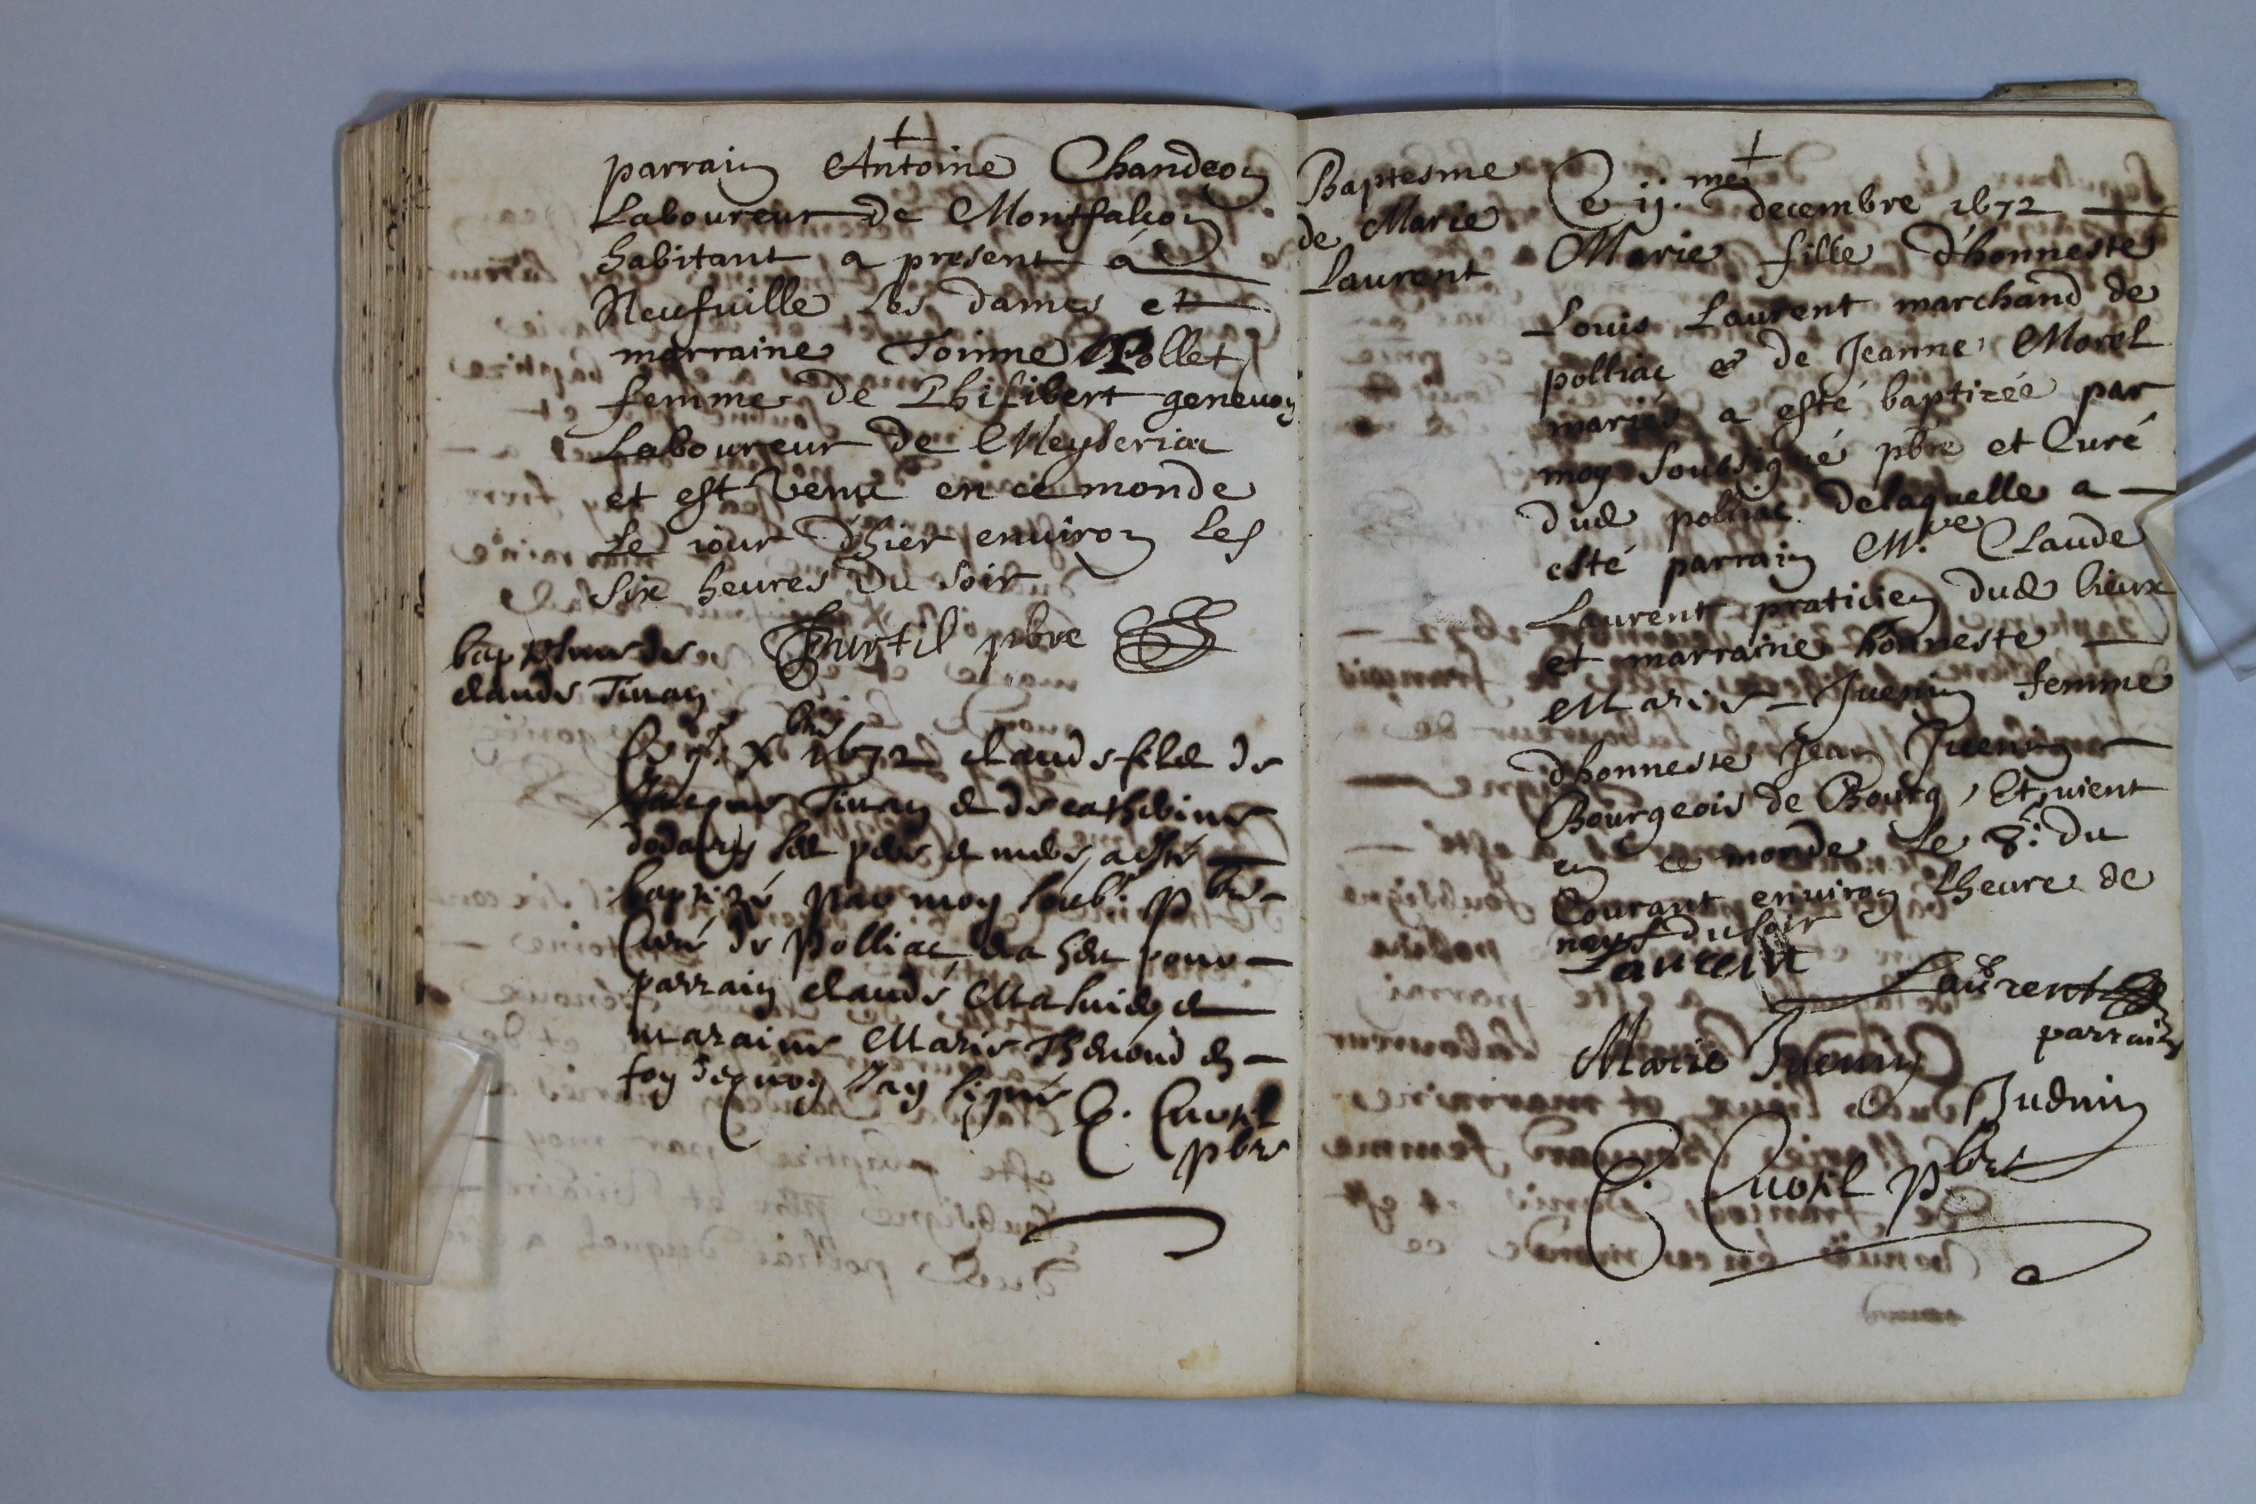 parrain Antoine Chandeon
Laboureur de Montfalcon
habitant a present à
Neufuille les dames et
marraine Toinne Pollet
femme de Philibert geneuoy
Laboureur de Meyseria
et est venu en ce monde
Le jour d'hier enuiron les
six heures du soir
Curtil pbre
baptesme de
claude
Ce xbre 1672 claude filz de
et de catherine
les pere et mere, a esté
baptizé par moy soub. pbre
Curé de Polliac, et a heu pour
parrain claude et
maraine Marie Thenoud En
foy dequoy Jay signé C. Curtil
pbre
Baptesme
de Marie
Laurent
Ce ij.me decembre 1672
Marie fille d'honneste
Louis Laurent marchand de
polliac & de Jeanne Morel
mariés a esté baptizée par
moy soubsigné pbre et Curé
dud polliac delaquelle a
esté parrain M.re Claude
Laurent praticien dud lieux
et marraine honneste
Marie Juenin femme
d'honneste Jean Juenin
Bourgeois de Bourg, Et vient
en ce monde le 8.e du
Courant enuiron lheure de
neuf du soir
Laurent
Laurent
parrain
Marie Juenin
Juenin
C. Curtil pbre